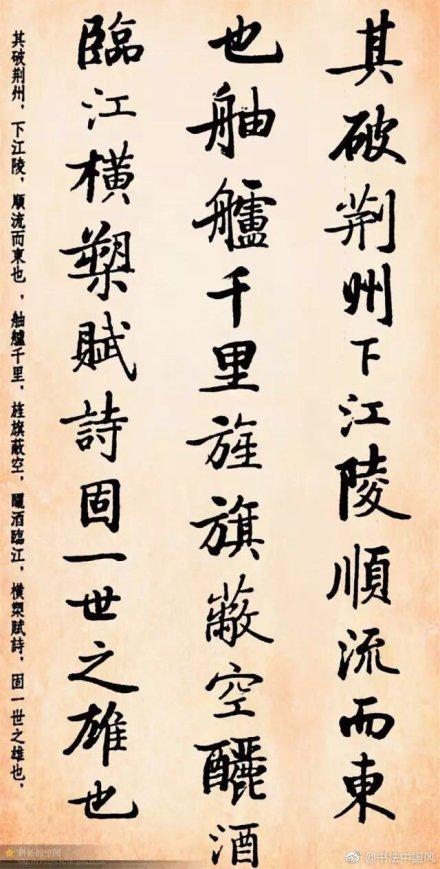 其破荆州下江陵順流而東
也舳艫千里旌旗蔽空釃酒
臨江橫槊賦詩固一世之雄也
其破荆州，下江陵，順流而東也，舳艫千里，旌旗蔽空，釃酒臨江，橫槊賦詩，固一世之雄也，
@书法中国风